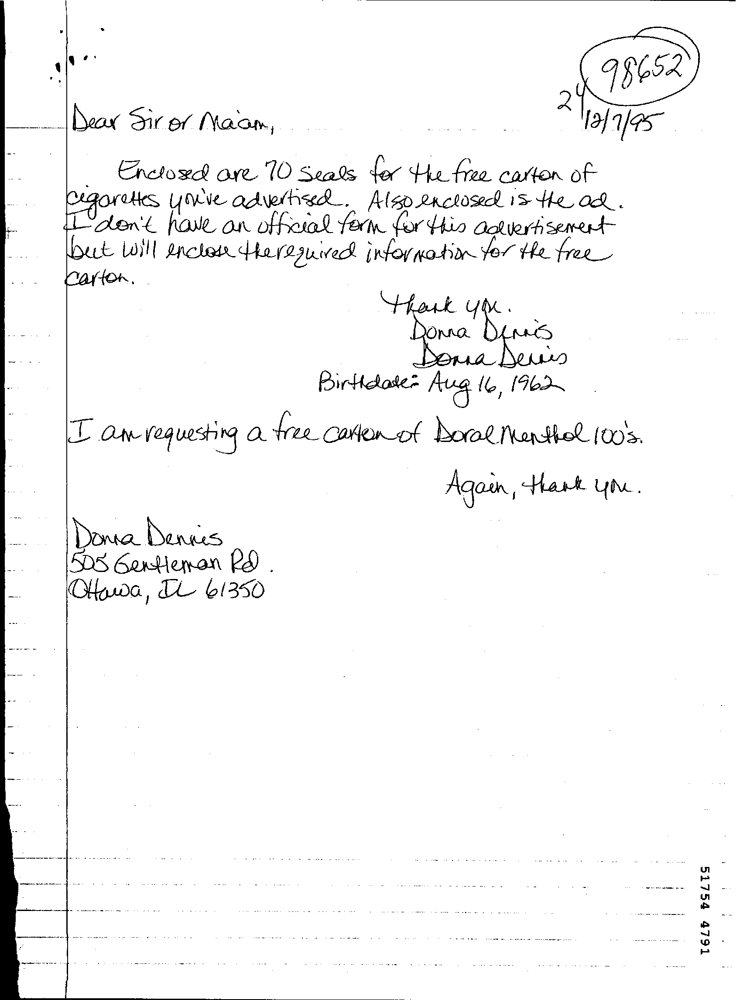 98652
24
12/7/95
Dear Sir or Ma'am,
Enclosed are 70 seals for the free carton of
cigarettes you've advertised. Also enclosed is the ad.
I don't have an official form for this advertisement
but will enclose the required information for the free
carton.
Thank you.
Donna Dennis
Donna Dennis
Birthdate: Aug 16, 1962
I am requesting a free carton of Doral Menthol 100's.
Again, thank you.
Donna Dennis
505 Gentleman Rd.
Ottawa, IL 61350
51754 4791